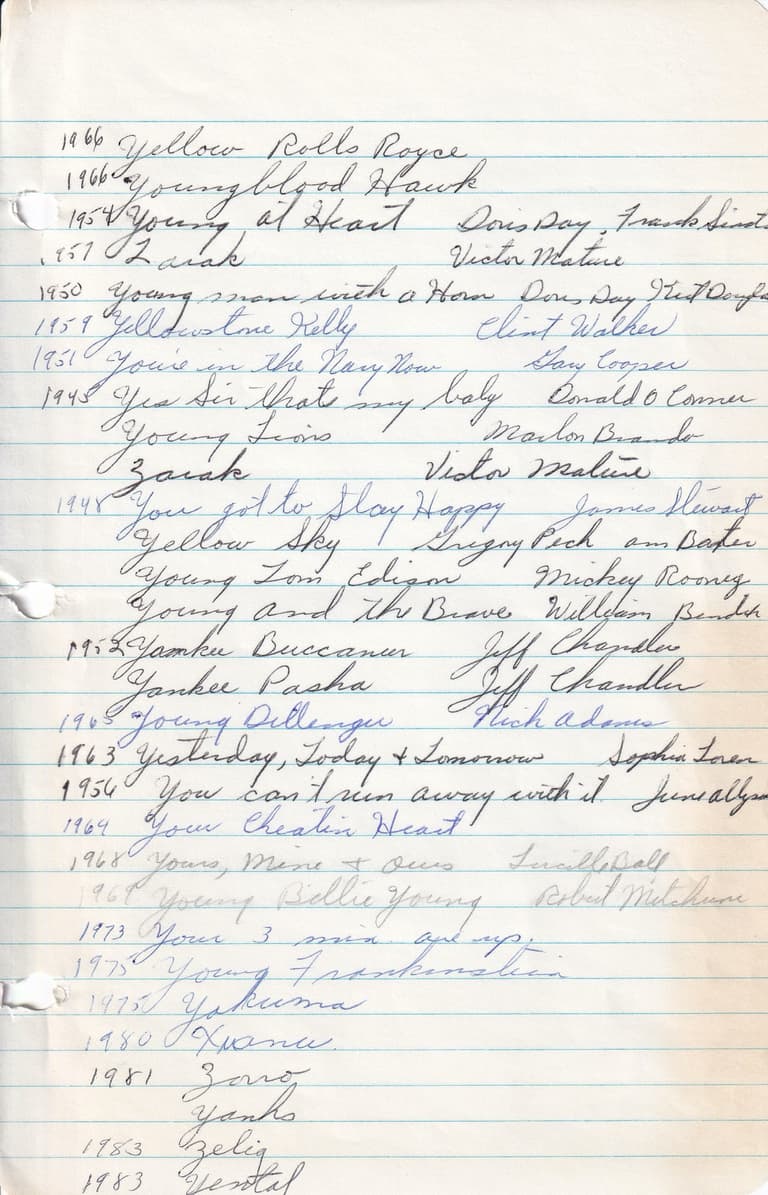 1966 Yellow Rolls Royce
1966 Youngblood Hawk
1954 Young at Heart Doris Day, Frank Sinat
1957 Zarak Victor Mature
1950 Young man with a Horn Doris Day Kirt Dougla
1959 Yellowstone Kelly Clint Walker
1951 You're in the Navy Now Gary Cooper
1945 Yes Sir that's my baby Donald O Conner
Young Lions Marlon Brando
Zarak Victor Mature
1948 You got to Stay Happy James Stewart
Yellow Sky Gregory Peck ann Baxter
Young Tom Edison Mickey Rooney
Young and the Brave William Bendix
1952 Yankee Buccaneer Jeff Chandler
Yankee Pasha Jeff Chandler
1965 Young Dillenger Nick Adams
1963 Yesterday, Today & Tomorrow Sophia Loren
1956 You can't run away with it June allyso
1964 Your Cheatin Heart
1968 Yours, Mine & Ours Lucille Ball
1969 Young Billie Young Robert Mitchum
1973 Your 3 min. are up.
1975 Young Frankinstein
1975 Yakuma
1980 Xuanu.
1981 Zorro
Yanks
1983 Zelig
1983 Yental